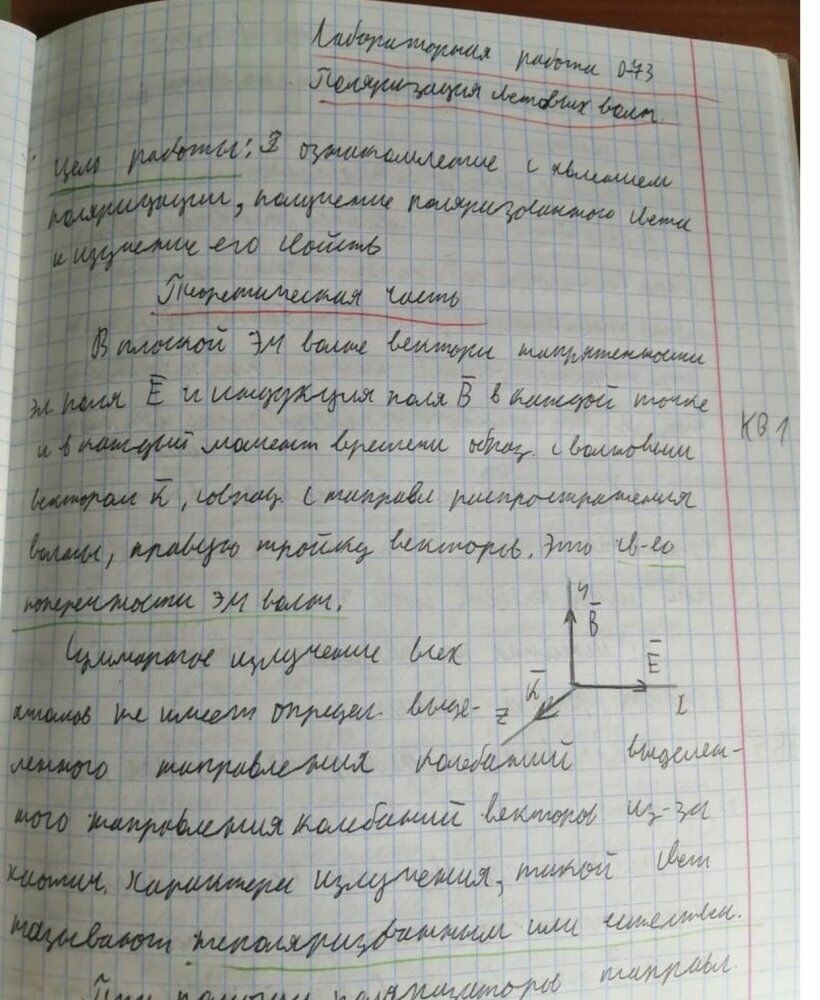 Лабораторная работа 0-73
Поляризация световых волн.
Цель работы: ознакомление с явлением
поляризации, получение поляризованного света
и изучение его свойств
Теоретическая часть
В плоской ЭМ волне векторы напряженности
эл. поля E̅ и индукция поля B̅ в каждой точке
и в каждый момент времени образ. с волновым
вектором K̅, совпад. с направл распространения
волны, правую тройку векторов. Это св-во
поперечности ЭМ волн.
КВ 1
Y
B̅
E̅
K̅
Z
X
Суммарное излучение всех
атомов не имеет определ. выде-
ленного направления колебаний выделен-
ного направления колебаний векторов из-за
хаотич. характера излучения, такой свет
называют неполяризванным или естествен.
При помощи поляризаторов направл.